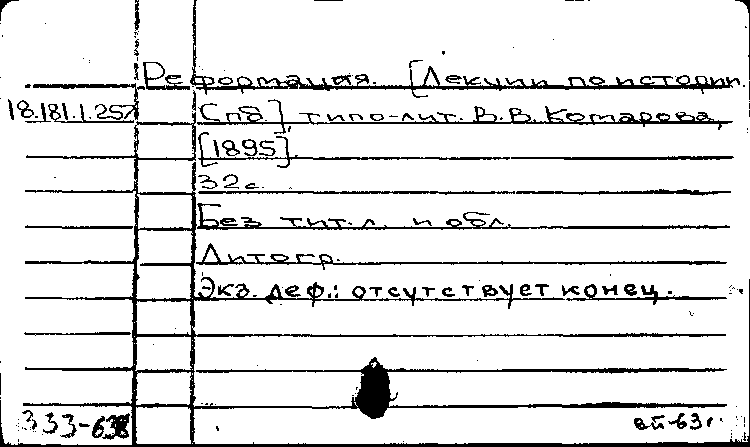 Реформация. [Лекции по истории.
18.181.1.257 Спб], типо-лит. В.В. Комарова,
[1895].
32 с.
Без тит. л. и обл.
Литогр.
Экз. деф.: отсутствует конец.
333-638
вй-63г.